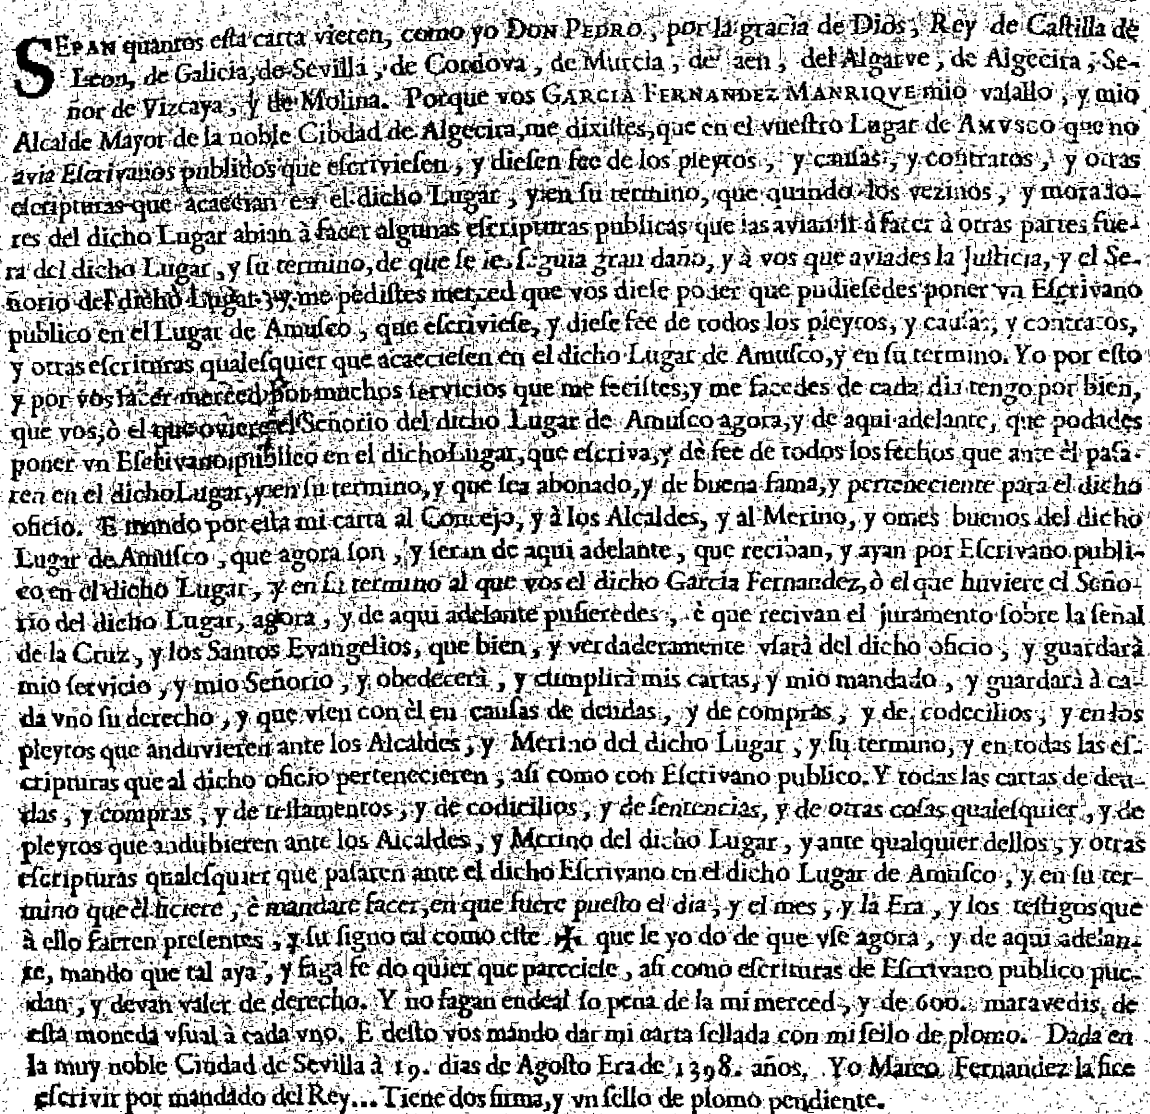 SEPAN quantos esta carta vieren, como yo DON PEDRO, por la gracia de Dios, Rey de Castilla de
Leon, de Galicia, de Sevilla, de Cordova, de Murcia, de aen, del Algarve, de Algecira, Se-
ñor de Vizcaya, y de Molina. Porque vos GARCIA FERNANDEZ MANRIQVE mio vasallo, y mio
Alcalde Mayor de la noble Cibdad de Algecira, me dixistes, que en el vuestro Lugar de AMVSCO que no
avia Escrivanos publicos que escriviesen, y diesen fee de los pleytos, y causas, y contratos, y otras
escripturas que acaecian en el dicho Lugar, y en su termino, que quando los vezinos, y morado-
res del dicho Lugar abian à facer algunas escripturas publicas que las avian ir à facer à otras partes fue-
ra del dicho Lugar, y su termino, de que se les seguia gran daño, y à vos que aviades la Justicia, y el Se-
ñorio del dicho Lugar, y me pedistes merced que vos diese poder que pudiesedes poner vn Escrivano
publico en el Lugar de Amusco, que escriviese, y diese fee de todos los pleytos, y causas, y contratos,
y otras escrituras qualesquier que acaeciesen en el dicho Lugar de Amusco, y en su termino. Yo por esto
y por vos facer merced por muchos servicios que me fecistes, y me facedes de cada dia tengo por bien,
que vos, ò el que oviere el Señorio del dicho Lugar de Amusco agora, y de aqui adelante, que podades
poner vn Escrivano publico en el dicho Lugar, que escriva, y dè fee de todos los fechos que ante èl pasa-
ren en el dicho Lugar, y en su termino, y que sea abonado, y de buena fama, y perteneciente para el dicho
oficio. E mando por esta mi carta al Concejo, y à los Alcaldes, y al Merino, y omes buenos del dicho
Lugar de Amusco, que agora son, y seran de aqui adelante, que reciban, y ayan por Escrivano publi-
co en el dicho Lugar, y en su termino al que vos el dicho Garcia Fernandez, ò el que huviere el Seño-
rio del dicho Lugar, agora, y de aqui adelante pusieredes, è que recivan el juramento sobre la señal
de la Cruz, y los Santos Evangelios, que bien, y verdaderamente vsarà del dicho oficio, y guardarà
mio servicio, y mio Señorio, y obedecerà, y cumplirà mis cartas, y mio mandado, y guardarà à ca-
da vno su derecho, y que vsen con èl en causas de deudas, y de compras, y de codecilios, y en los
pleytos que anduvieren ante los Alcaldes, y Merino del dicho Lugar, y su termino, y en todas las es-
cripturas que al dicho oficio pertenecieren, asi como con Escrivano publico. Y todas las cartas de deu-
das, y compras, y de testamentos, y de codicilios, y de sentencias, y de otras cosas qualesquier, y de
pleytos que andubieren ante los Alcaldes, y Merino del dicho Lugar, y ante qualquier dellos, y otras
escripturas qualesquier que pasaren ante el dicho Escrivano en el dicho Lugar de Amusco, y en su ter-
mino que èl ficiere, è mandare facer, en que fuere puesto el dia, y el mes, y la Era, y los testigos que
à ello fueren presentes, y su signo tal como este ✠ que le yo do de que vse agora, y de aqui adelan-
te, mando que tal aya, y faga fe do quier que pareciese, asi como escrituras de Escrivano publico pue-
dan, y devan valer de derecho. Y no fagan endeal so pena de la mi merced, y de 600. maravedis, de
esta moneda vsual à cada vno. E desto vos mando dar mi carta sellada con mi sello de plomo. Dada en
la muy noble Ciudad de Sevilla à 19. dias de Agosto Era de 1398. años. Yo Marco Fernandez la fice
escrivir por mandado del Rey... Tiene dos firma, y vn sello de plomo pendiente.